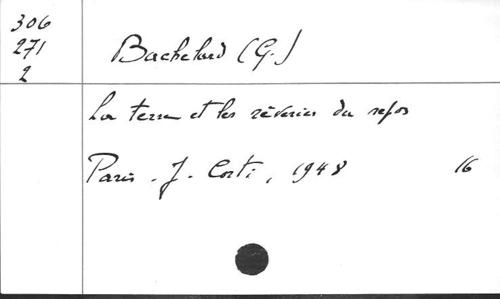 306
271
2
Bachelard (G.)
La terre et les rêveries du repos
Paris. J. Corti, 1948 16